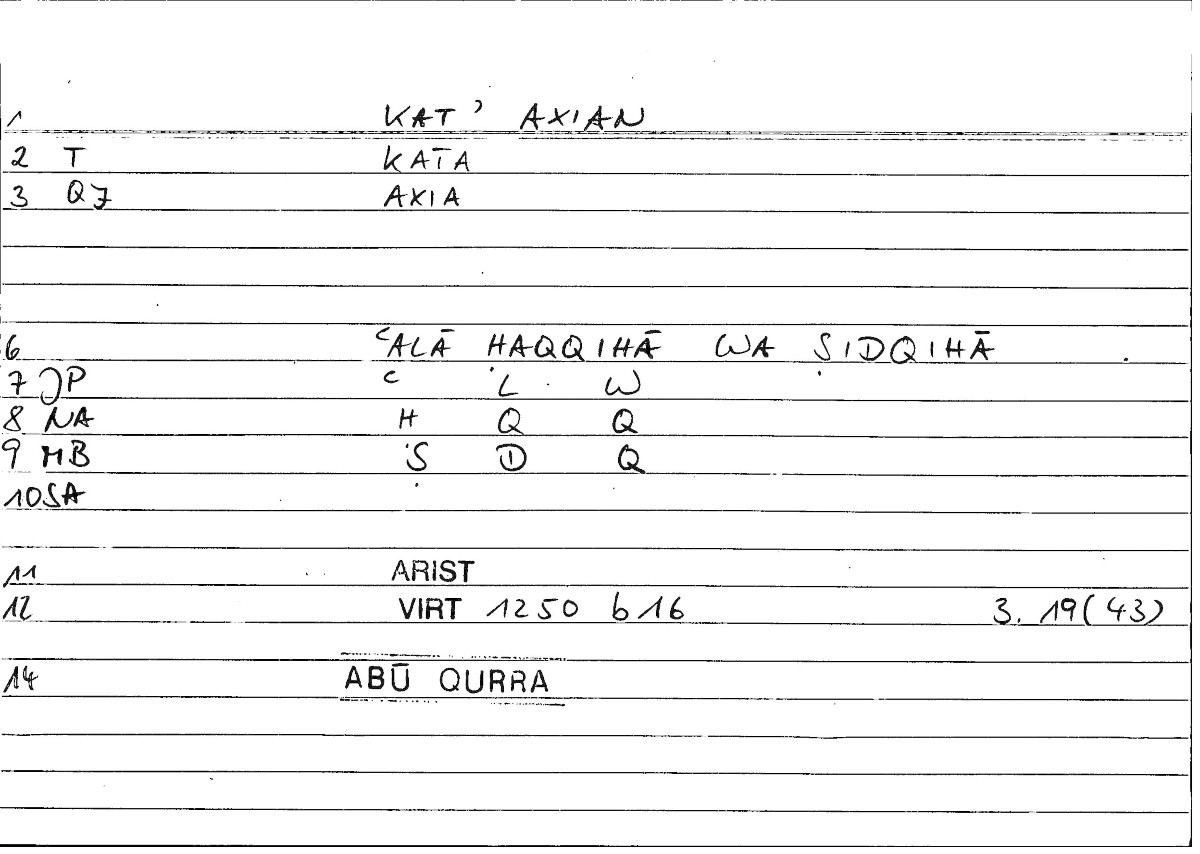 1 KAT ' AXIAN
2 T KATA
3 QJ AXIA
6 ʿALĀ ḤAQQIHĀ WA ṢIDQIHĀ
7 JP ʿ L W
8 NA Ḥ Q Q
9 MB Ṣ D Q
10 SA
11 ARIST
12 VIRT 1250 b 16 3. 19 (43)
14 ABŪ QURRA